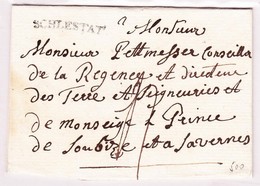 SCHLESTAT
a Monsieur
Monsieur Pettmesser Conseiller
de la Regence et directeur
des Terre et Seigneuries
de monseig
Prince
de Soubize et a Savernes